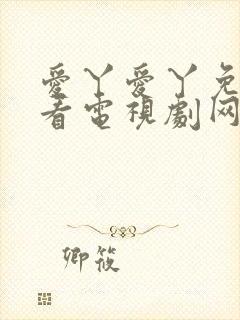 愛丫愛丫免
看電視劇网
卿筱